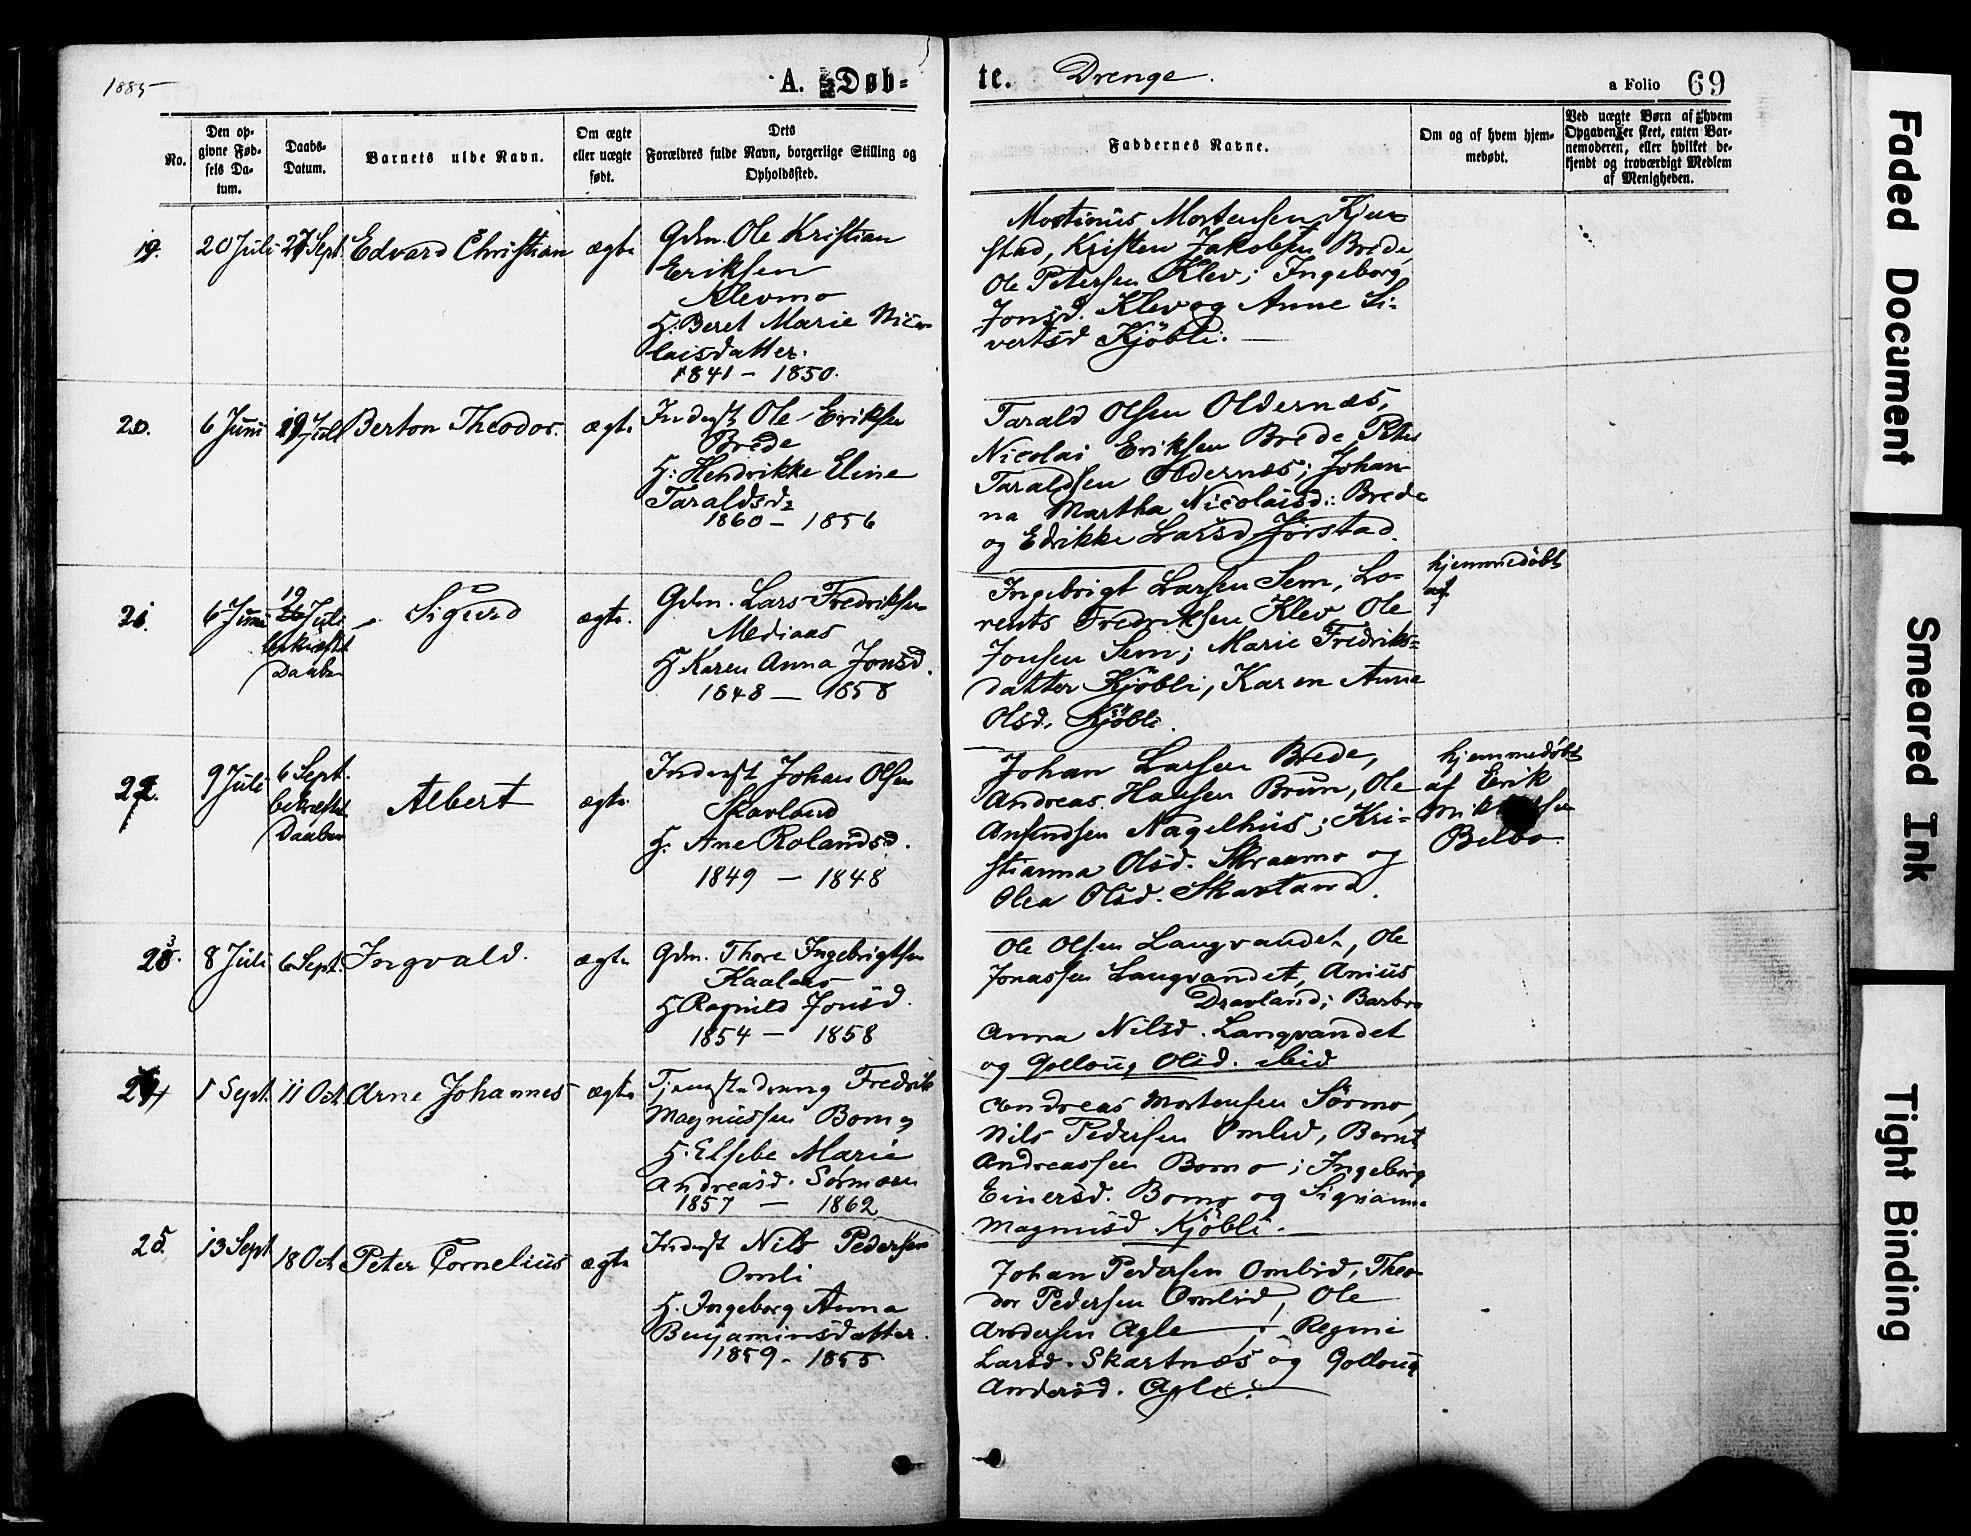 1885
A. Døb-
te. Drenge.
a Folio 69
No.
Den op-
givne Fød-
sels Da-
tum.
Daabs-
Datum.
Barnets ulde Navn.
Om ægte
eller uægte
født.
Dets
Forældres fulde Navn, borgerlige Stilling og
Opholdssted.
Faddernes Navne.
Om og af hvem hjem-
medøbt.
Ved uægte Børn af hvem
Opgaven er skeet, enten Bar-
nemoderen, eller hvilket be-
kjendt og troværdigt Medlem
af Menigheden.
19. 20 Juli 27 Sept. Edvard Christian ægte
Gdm. Ole Kristian
Eriksen
Klevmo
H: Beret Marie Nico-
laisdatter.
1841 - 1850.
Mortinus Mortensen
stad, Kristen Jakobsen Brede,
Ole Petersen Klev; Ingeborg
Jonsd. Klev og Anne Si-
vertsd Kjöbli.
20. 6 Juni 19 Juli Berton Theodor. ægte
Inderst Ole Eriksen
Brede
H: Hendrikke Eline
Taraldsd.
1860 - 1856
Tarald Olsen Oldernæs,
Nicolai Eriksen Brede,
Taraldsen Oldernæs; Johan-
na Martha Nicolaisd: Brede
og Edrikke Larsd Jörstad.
21. 6 Juni 19 Juli
bekræftet
Daaben
Sigurd
ægte.
Gdm. Lars Fredriksen
Mediaas
H Karen Anna Jonsd.
1848 - 1858
Ingebrigt Larsen Sem, Lo-
rents Fredriksen Klev, Ole
Jonsen Sem; Marie Fredriks-
datter Kjöbli, Karen Anna
Olsd. Kjöbli.
hjemmedöbt
af
22. 9 Juli 6 Sept.
bekræftet
Daaben
Albert
ægte.
Inderst Johan Olsen
Skavland
H. Ane Rolandsd.
1849 - 1848
Johan Larsen Brede,
Andreas Hansen Brun, Ole
Nagelhus; Kri-
stianna Olsd. Skraamo og
Olea Olsd. Skavland.
hjemmedöbt
af Erik
Belbo.
23. 8 Juli 6 Sept. Ingvald. ægte
Gdm. Thore Ingebrigtsen
Kaalaas
H Ragnild Jonsd.
1854 - 1858
Ole Olsen Langvandet, Ole
Jonassen Langvandet, Anius
Dravland; Barbro
Anna Nilsd. Langvandet
og Golloug Olsd. ibid
24 1 Sept. 11 Oct. Arne Johannes ægte
Tjenestedreng Fredrik
Magnussen Bomo
H. Elsebe Marie
Andreasd. Sörmoen
1857 - 1862
Andreas Mortensen Sörmo,
Nils Pedersen Omlid, Bernt
Andreassen Bomo; Ingeborg
Einersd. Bomo og Sigrianna
Magnusd Kjöbli.
25. 13 Sept 18 Oct Peter Cornelius ægte
Inderst Nils Pedersen
Omli
H. Ingeborg Anna
Benjaminsdatter.
1859 - 1855
Johan Pedersen Omlid, Theo-
dor Pedersen Omlid, Ole
Andersen Agle; Regine
Larsd. Skartnæs og Golloug
Andersd. Agle.
Faded Document
Smeared Ink
Tight Binding